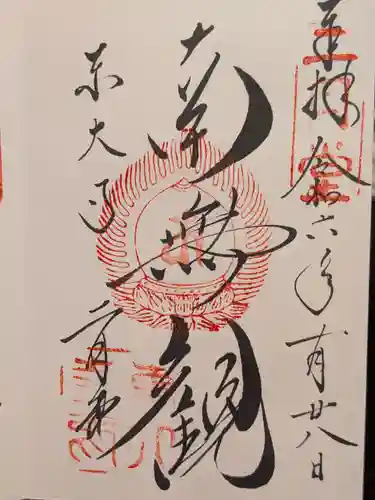 奉拝 令和六年十月廿八日
南無観
東大寺 二月堂